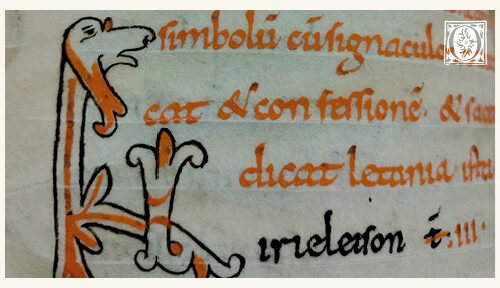 simbolū cūsignaculo
cat & confessionē· & sac
dicat letania ista
Kirieleison t̄·III·